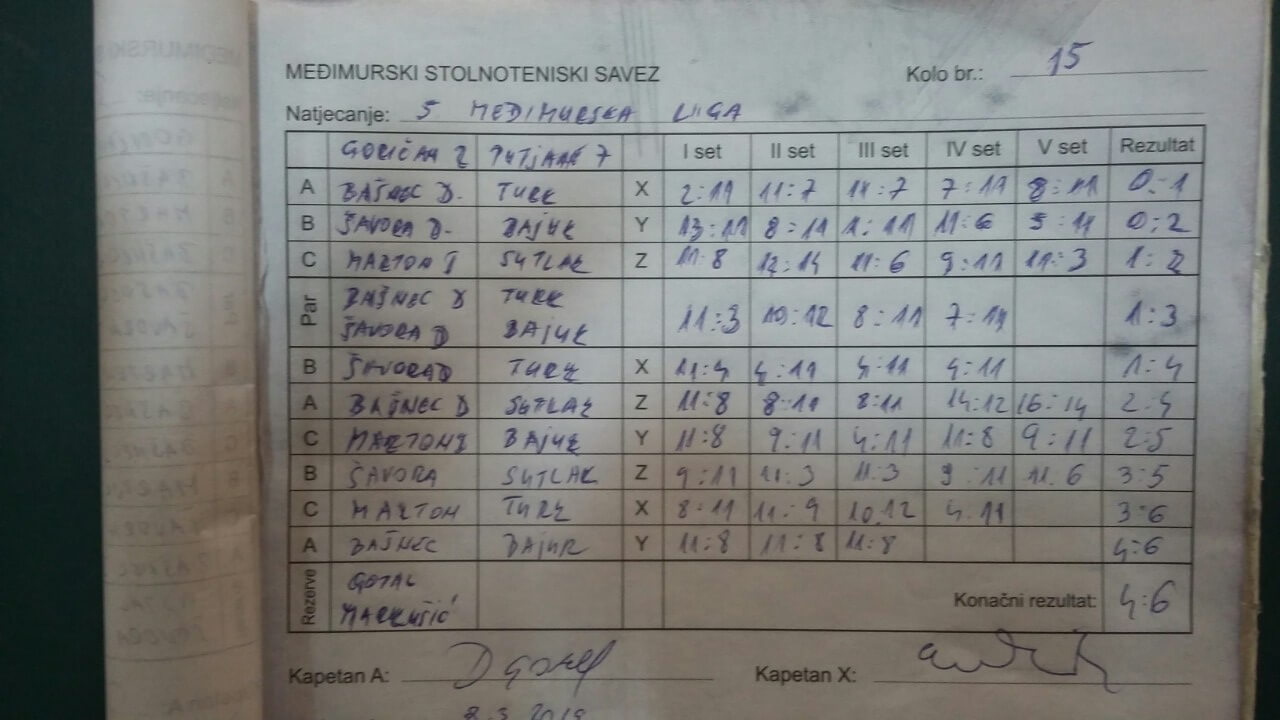 MEĐIMURSKI STOLNOTENISKI SAVEZ Kolo br.: 15
Natjecanje: 5 MEĐIMURSKA LIGA
GORIČAN 2 7 I set II set III set IV set V set Rezultat
A BAŠNEC D. TURK X 2:11 11:7 11:7 7:11 8:11 0:1
B ŠAVORA D. BAJUK Y 13:11 8:11 11:6 5:11 0:2
C MARTON SUTLAR Z 11:8 12:14 11:6 9:11 11:3 1:2
Par BAŠNEC D TURK
ŠAVORA D BAJUK 11:3 10:12 8:11 7:11 1:3
B ŠAVORA D TURK X 11:4 4:11 4:11 4:11 1:4
A BAŠNEC D SUTLAR Z 11:8 8:11 8:11 14:12 16:14 2:4
C MARTON BAJUK Y 11:8 9:11 4:11 11:8 9:11 2:5
B ŠAVORA SUTLAR Z 9:11 11:3 11:3 9:11 11.6 3:5
C MARTON TURK X 8:11 11:9 10.12 4.11 3:6
A BAŠNEC BAJUK Y 11:8 11:8 11:8 4:6
Rezerve GOTAL
MARKUŠIĆ Konačni rezultat: 4:6
Kapetan A: Kapetan X: